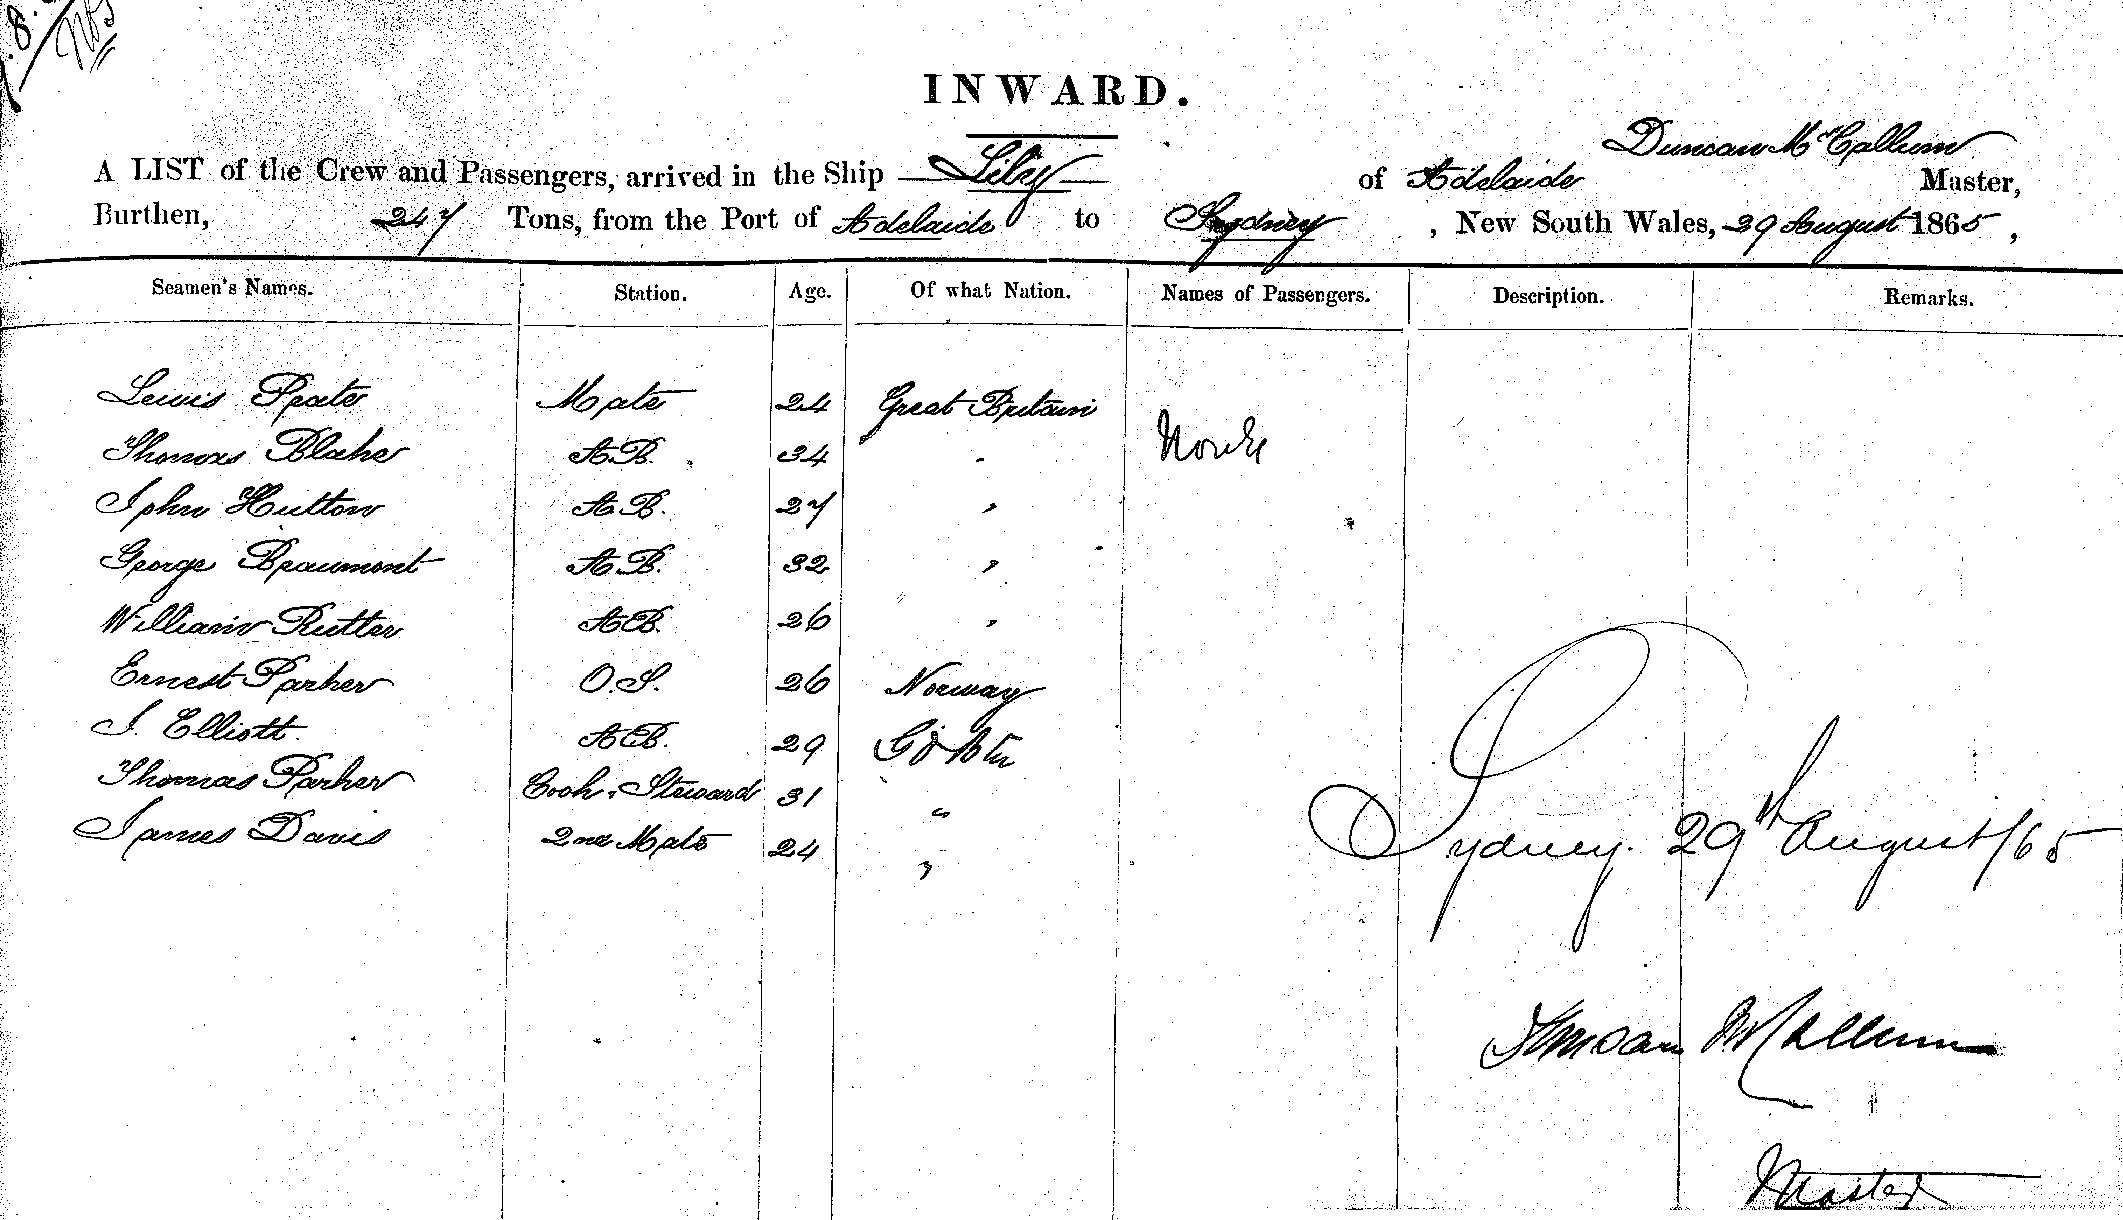 INWARD.
Duncan McCallum
A LIST of the Crew and Passengers, arrived in the Ship Lily of Adelaide Master,
Burthen, 247 Tons, from the Port of Adelaide to Sydney, New South Wales, 29 August 1865,
Seamen's Names. Station. Age. Of what Nation. Names of Passengers. Description. Remarks.
Lewis Mate 24 Great Britain
Thomas Blake A.B. 34 " None
John Hutton A.B. 27 "
George Beaumont A.B. 32 "
William Rutter A.B. 26 "
Ernest Parker O.S. 26 Norway
J. Elliott. A.B. 29 Gt Btn
Thomas Parker Cook & Steward 31 "
James Davis 2nd Mate 24 "
Sydney. 29th August/65
Duncan McCallum
Master